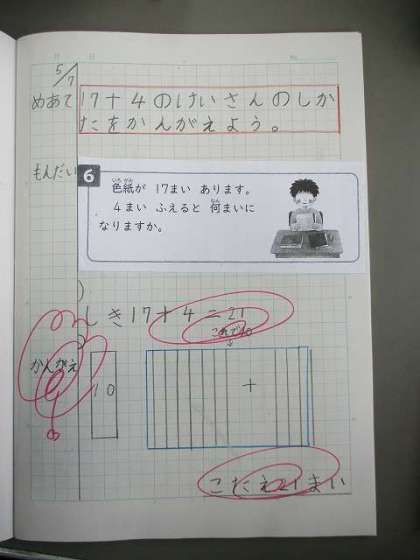 5/7
めあて
17+4のけいさんのしか
たをかんがえよう。
もんだい
6
色紙が 17まい あります。
4まい ふえると 何まいに
なりますか。
しき17+4=21
これで10
かんがえ
10
+
こたえ21まい